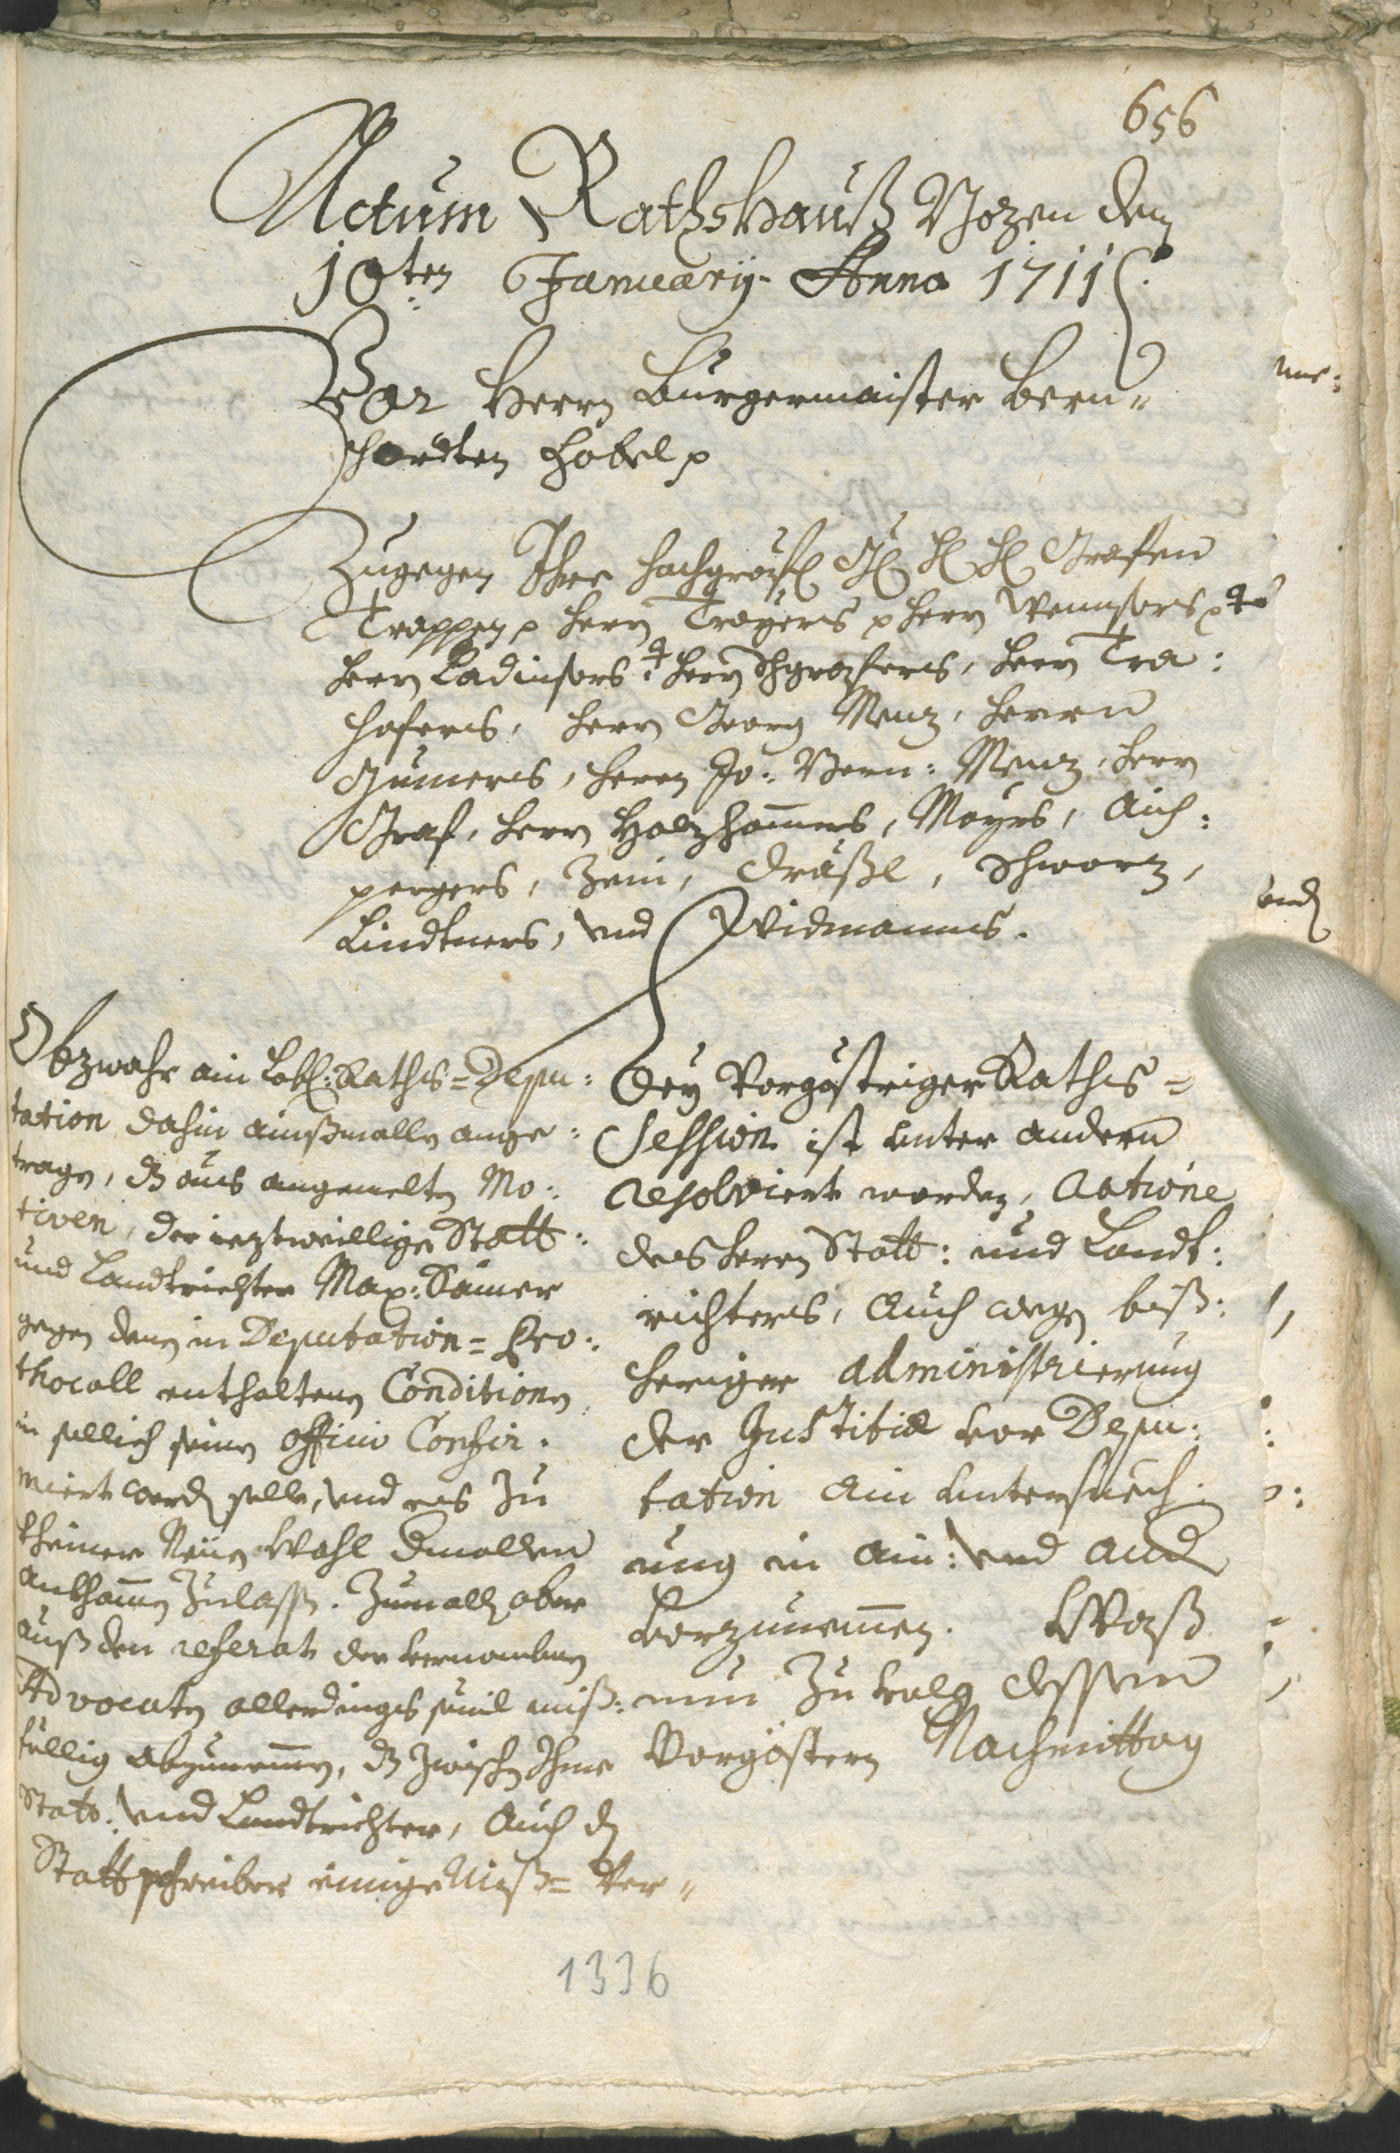 656
Actum Rathshauß Bozen den
10ten January. Anno 1711.
Vor Herrn Burgermaister Bern¬
hardten Hobel p
Zugegen Ihro hochgräfl: G: H: H: Grafen
Trappen p Herrn Troyers p Herrn
Herrn Ladinsers Herrn Herrn Tra:
hofers, Herrn Georg Menz, Herrn
Gumers, Herrn Jo: Bern: Menz, Herrn
Graf, Herrn Holzhamers, Mayrs, Aich:
pergers, Zeni, Dräßl, Schwarz,
Lindtners, und Widmanns.
Obzwahr ain Lobl: Raths=Depu:
tation dahin ainßmalln ange:
tragn, dz aus angemelten Mo:
tiven, der ieztweillige Statt:
und Landtrichter Max: Sämer
gegen denen in Deputation=Pro:
thocoll enthaltenen Conditionen
in sollich seinen Officio Confir:
miert werden solle, und es zu
kheiner Neuen Wahl dmallen
ankhomen zulassen. Zumalln aber
auß den referat der benambten
Advocaten allerdings sovil miß:
fällig abzunemmen, dz zwischen Ihme
Statt: und Landtrichter, auch dem
Stattschreiber einige Miß=Ver¬
Bey Vorgöstriger Raths=
Session ist unter andern
resolviert worden, Ratione
des Herrn Statt: und Landt:
richters, auch wegen biß:
heriger administrierung
der Justitia vor Depu:
tation ain untersuech:
ung in ain: und and
vorzunemmen. Waß
nun zu volg dessen
Vorgöstern Nachmittag
1336